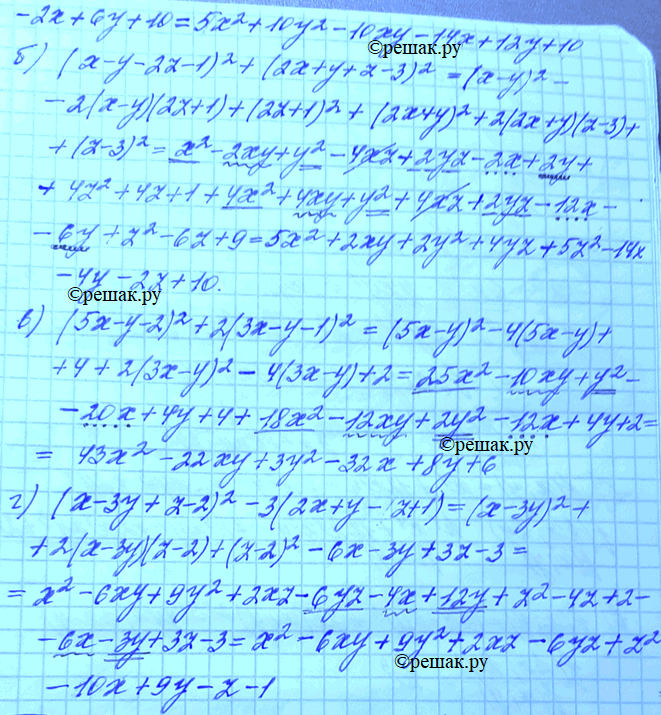 -2x+6y+10=5x²+10y²-10xy-14x+12y+10
©решак.ру
б) (x-y-2z-1)²+(2x+y+z-3)²=(x-y)²-
-2(x-y)(2z+1)+(2z+1)²+(2x+y)²+2(2x+y)(z-3)+
+(z-3)²=x²-2xy+y²-4xz+2yz-2x+2y+
+4z²+4z+1+4x²+4xy+y²+4xz+2yz-12x-
-6y+z²-6z+9=5x²+2xy+2y²+4yz+5z²-14x
-4y-2z+10.
©решак.ру
в) (5x-y-2)²+2(3x-y-1)²=(5x-y)²-4(5x-y)+
+4+2(3x-y)²-4(3x-y)+2=25x²-10xy+y²-
-20x+4y+4+18x²-12xy+2y²-12x+4y+2=
©решак.ру
=43x²-22xy+3y²-32x+8y+6
г) (x-3y+z-2)²-3(2x+y-z+1)=(x-3y)²+
+2(x-3y)(z-2)+(z-2)²-6x-3y+3z-3=
=x²-6xy+9y²+2xz-6yz-4x+12y+z²-4z+2-
-6x-3y+3z-3=x²-6xy+9y²+2xz-6yz+z²
©решак.ру
-10x+9y-z-1